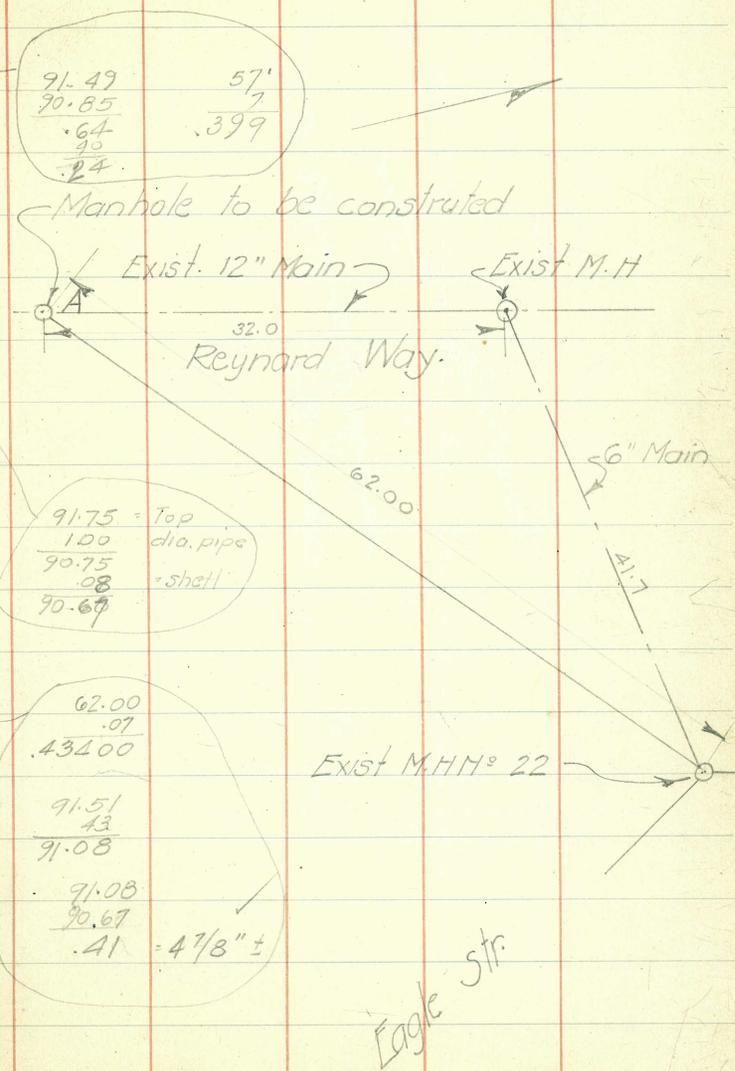 91.49 57'
90.85 7
.64 .399
40
.24
Manhole to be construted
Exist. 12" Main Exist M.H
A
32.0
Reynard Way.
6" Main
62.00
41.7
91.75 = Top
1.00 dia. pipe
90.75
.08 = shell
90.67
62.00
.07
.43400
Exist M.H Nº 22
91.51
43
91.08
91.08
90.67
.41 = 4 7/8" ±
Eagle Str.